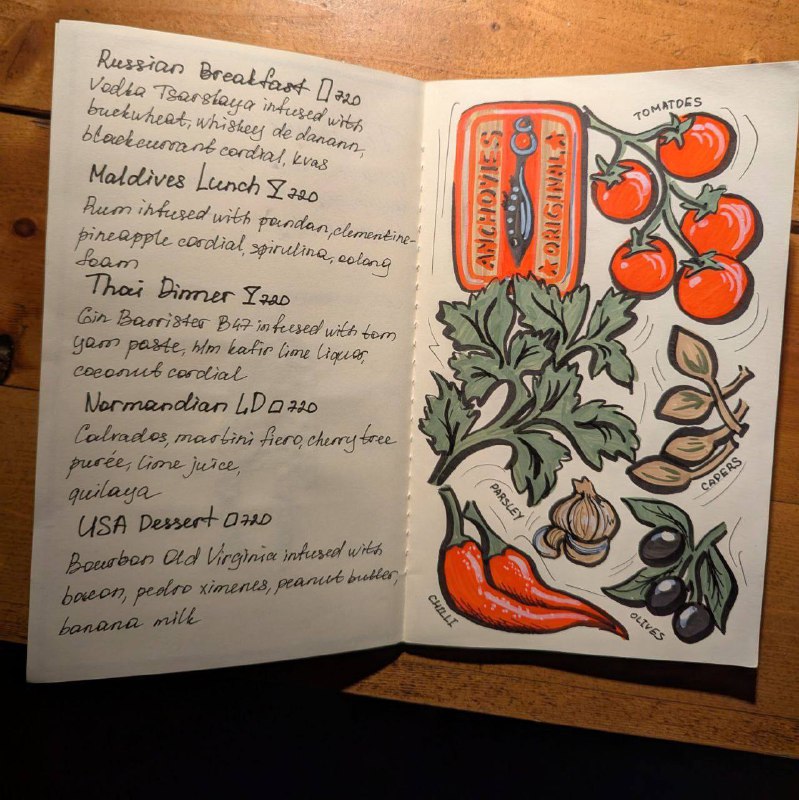 Russian Breakfast 720
Vodka Tsarskaya infused with
buckwheat, whiskey de danann,
blackcurrant cordial, kvas
Maldives Lunch 720
Rum infused with pandan, clementine-
pineapple cordial, spirulina, oolong
foam
Thai Dinner 720
Gin Barrister B47 infused with tom
yam paste, hlm kafir lime liquor,
coconut cordial
Normandian LD 720
Calvados, martini fiero, cherry tree
purée, lime juice,
quilaya
USA Dessert 720
Bourbon Old Virginia infused with
bacon, pedro ximenes, peanut butter,
banana milk
ANCHOVIES
ORIGINAL
TOMATOES
CAPERS
PARSLEY
CHILLI
OLIVES